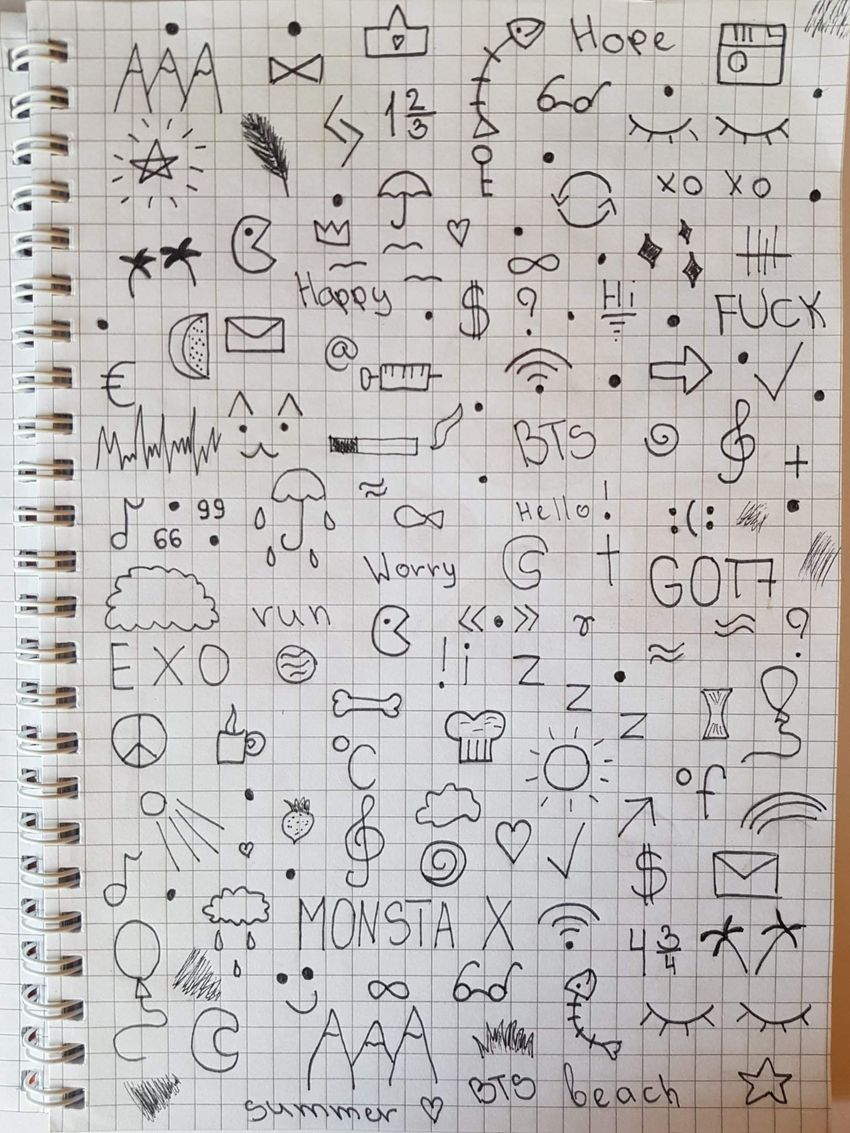 Hope
1 2/3
xo xo
Happy
$ ? Hi FUCK
€ @
BTS
99
66
Hello!
:(:
Worry
GOT7
run
« • » r ?
EXO
! i z
z
z
°C
°f
$
MONSTA X
4 3/4
BTS beach
summer